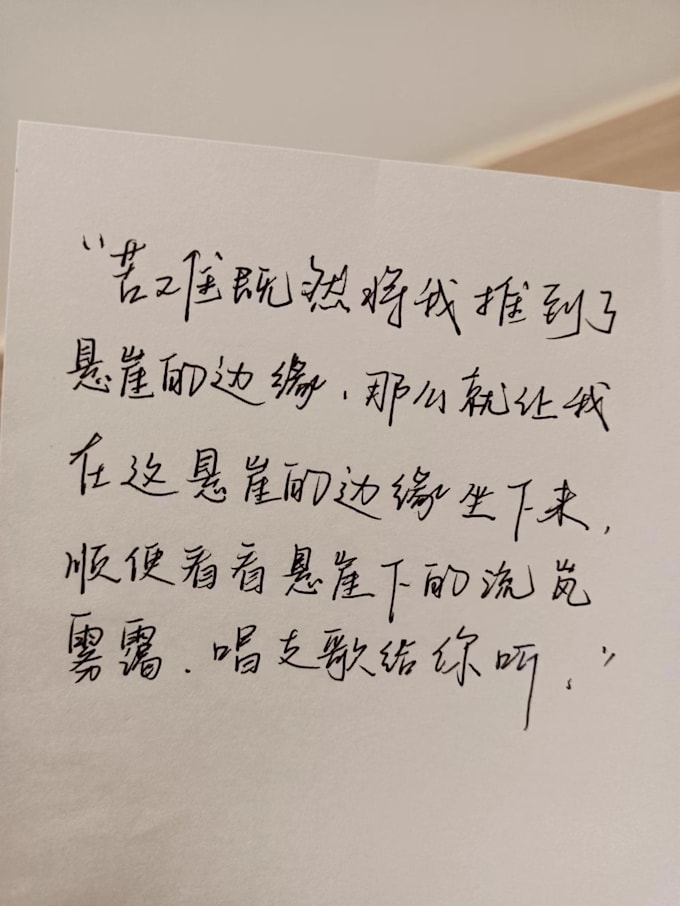 “苦难既然将我推到了
悬崖的边缘，那么就让我
在这悬崖的边缘坐下来，
顺便看看悬崖下的流岚
雾霭，唱支歌给你听。”